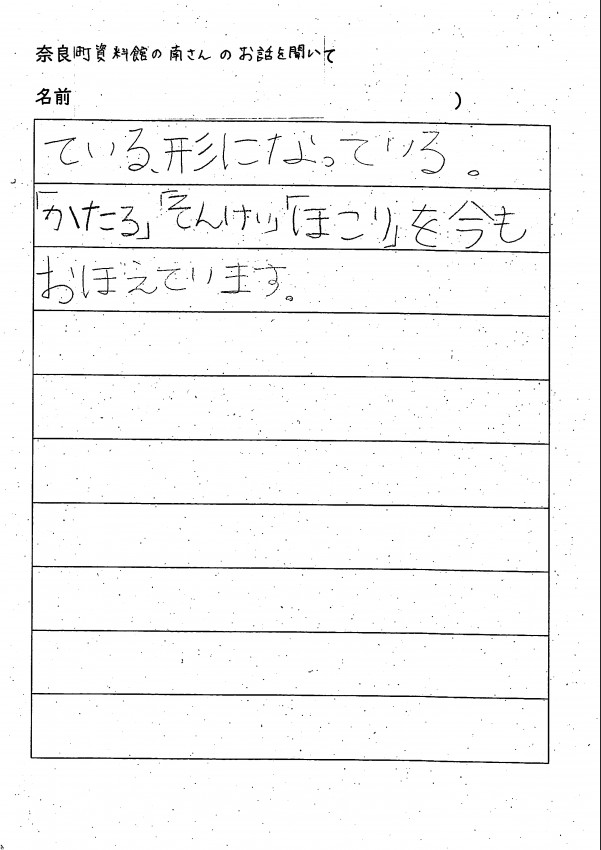 奈良町資料館の南さんのお話を聞いて
名前 )
ている、形になっている。
「かたる」「そんけい」「ほこり」を今も
おぼえています。